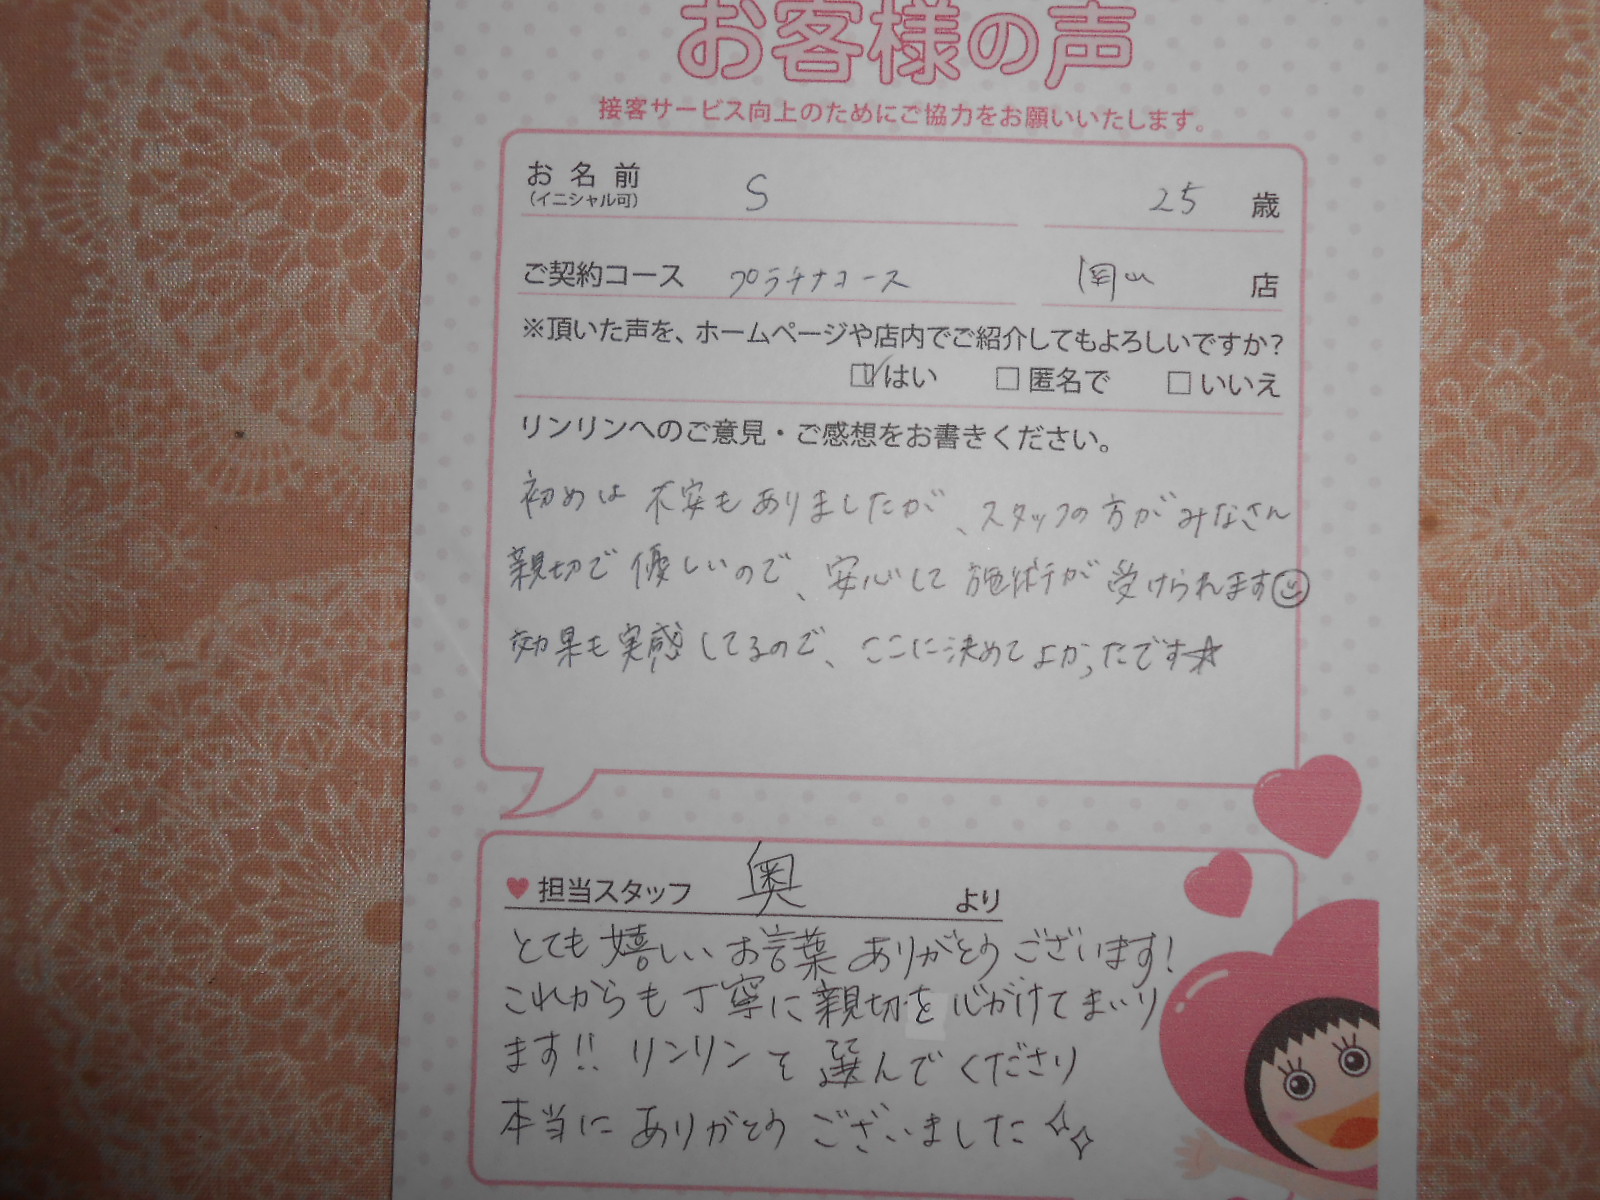 お客様の声
接客サービス向上のためにご協力をお願いいたします。
お名前 S 25 歳
(イニシャル可)
ご契約コース プラチナコース 岡山 店
※頂いた声を、ホームページや店内でご紹介してもよろしいですか?
☑はい □匿名で □いいえ
リンリンへのご意見・ご感想をお書きください。
初めは不安もありましたが、スタッフの方がみなさん
親切で優しいので、安心して施術が受けられます☺
効果も実感してるので、ここに決めてよかったです☆
♥担当スタッフ 奥 より
とても嬉しいお言葉ありがとうございます!
これからも丁寧に親切を心がけてまいり
ます!! リンリンを選んでくださり
本当にありがとうございました✧✧